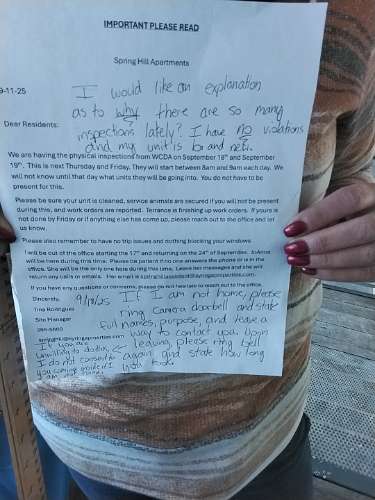 IMPORTANT PLEASE READ
Spring Hill Apartments
9-11-25
I would like an explanation
as to why there are so many
inspections lately? I have no violations
and my unit is and
Dear Residents:
We are having the physical inspections from WCDA on September 18th and September
19th. This is next Thursday and Friday. They will start between 8am and 9am each day. We
will not know until that day what units they will be going into. You do not have to be
present for this.
Please be sure your unit is cleaned, service animals are secured if you will not be present
during this, and work orders are reported. Terrance is finishing up work orders. If yours is
not done by Friday or if anything else has come up, please reach out to the office and let
us know.
Please also remember to have no trip issues and nothing blocking your windows.
I will be out of the office starting the 17th and returning on the 24th of September.
will be here during this time. Please be patient if no one answers the phone or is in the
office. She will be the only one here during this time. Leave her messages and she will
return any calls or emails. Her email is
If you have any questions or concerns, please do not hesitate to reach out to the office.
Sincerely,
Tina Rodriguez
Site Manager
If I am not home, please
ring camera doorbell and state
full names, purpose, and leave a
way to contact you. Upon
leaving, please ring bell
again and state how long
you took.
If you are
unwilling to do this,
I do not consent to
you coming inside!